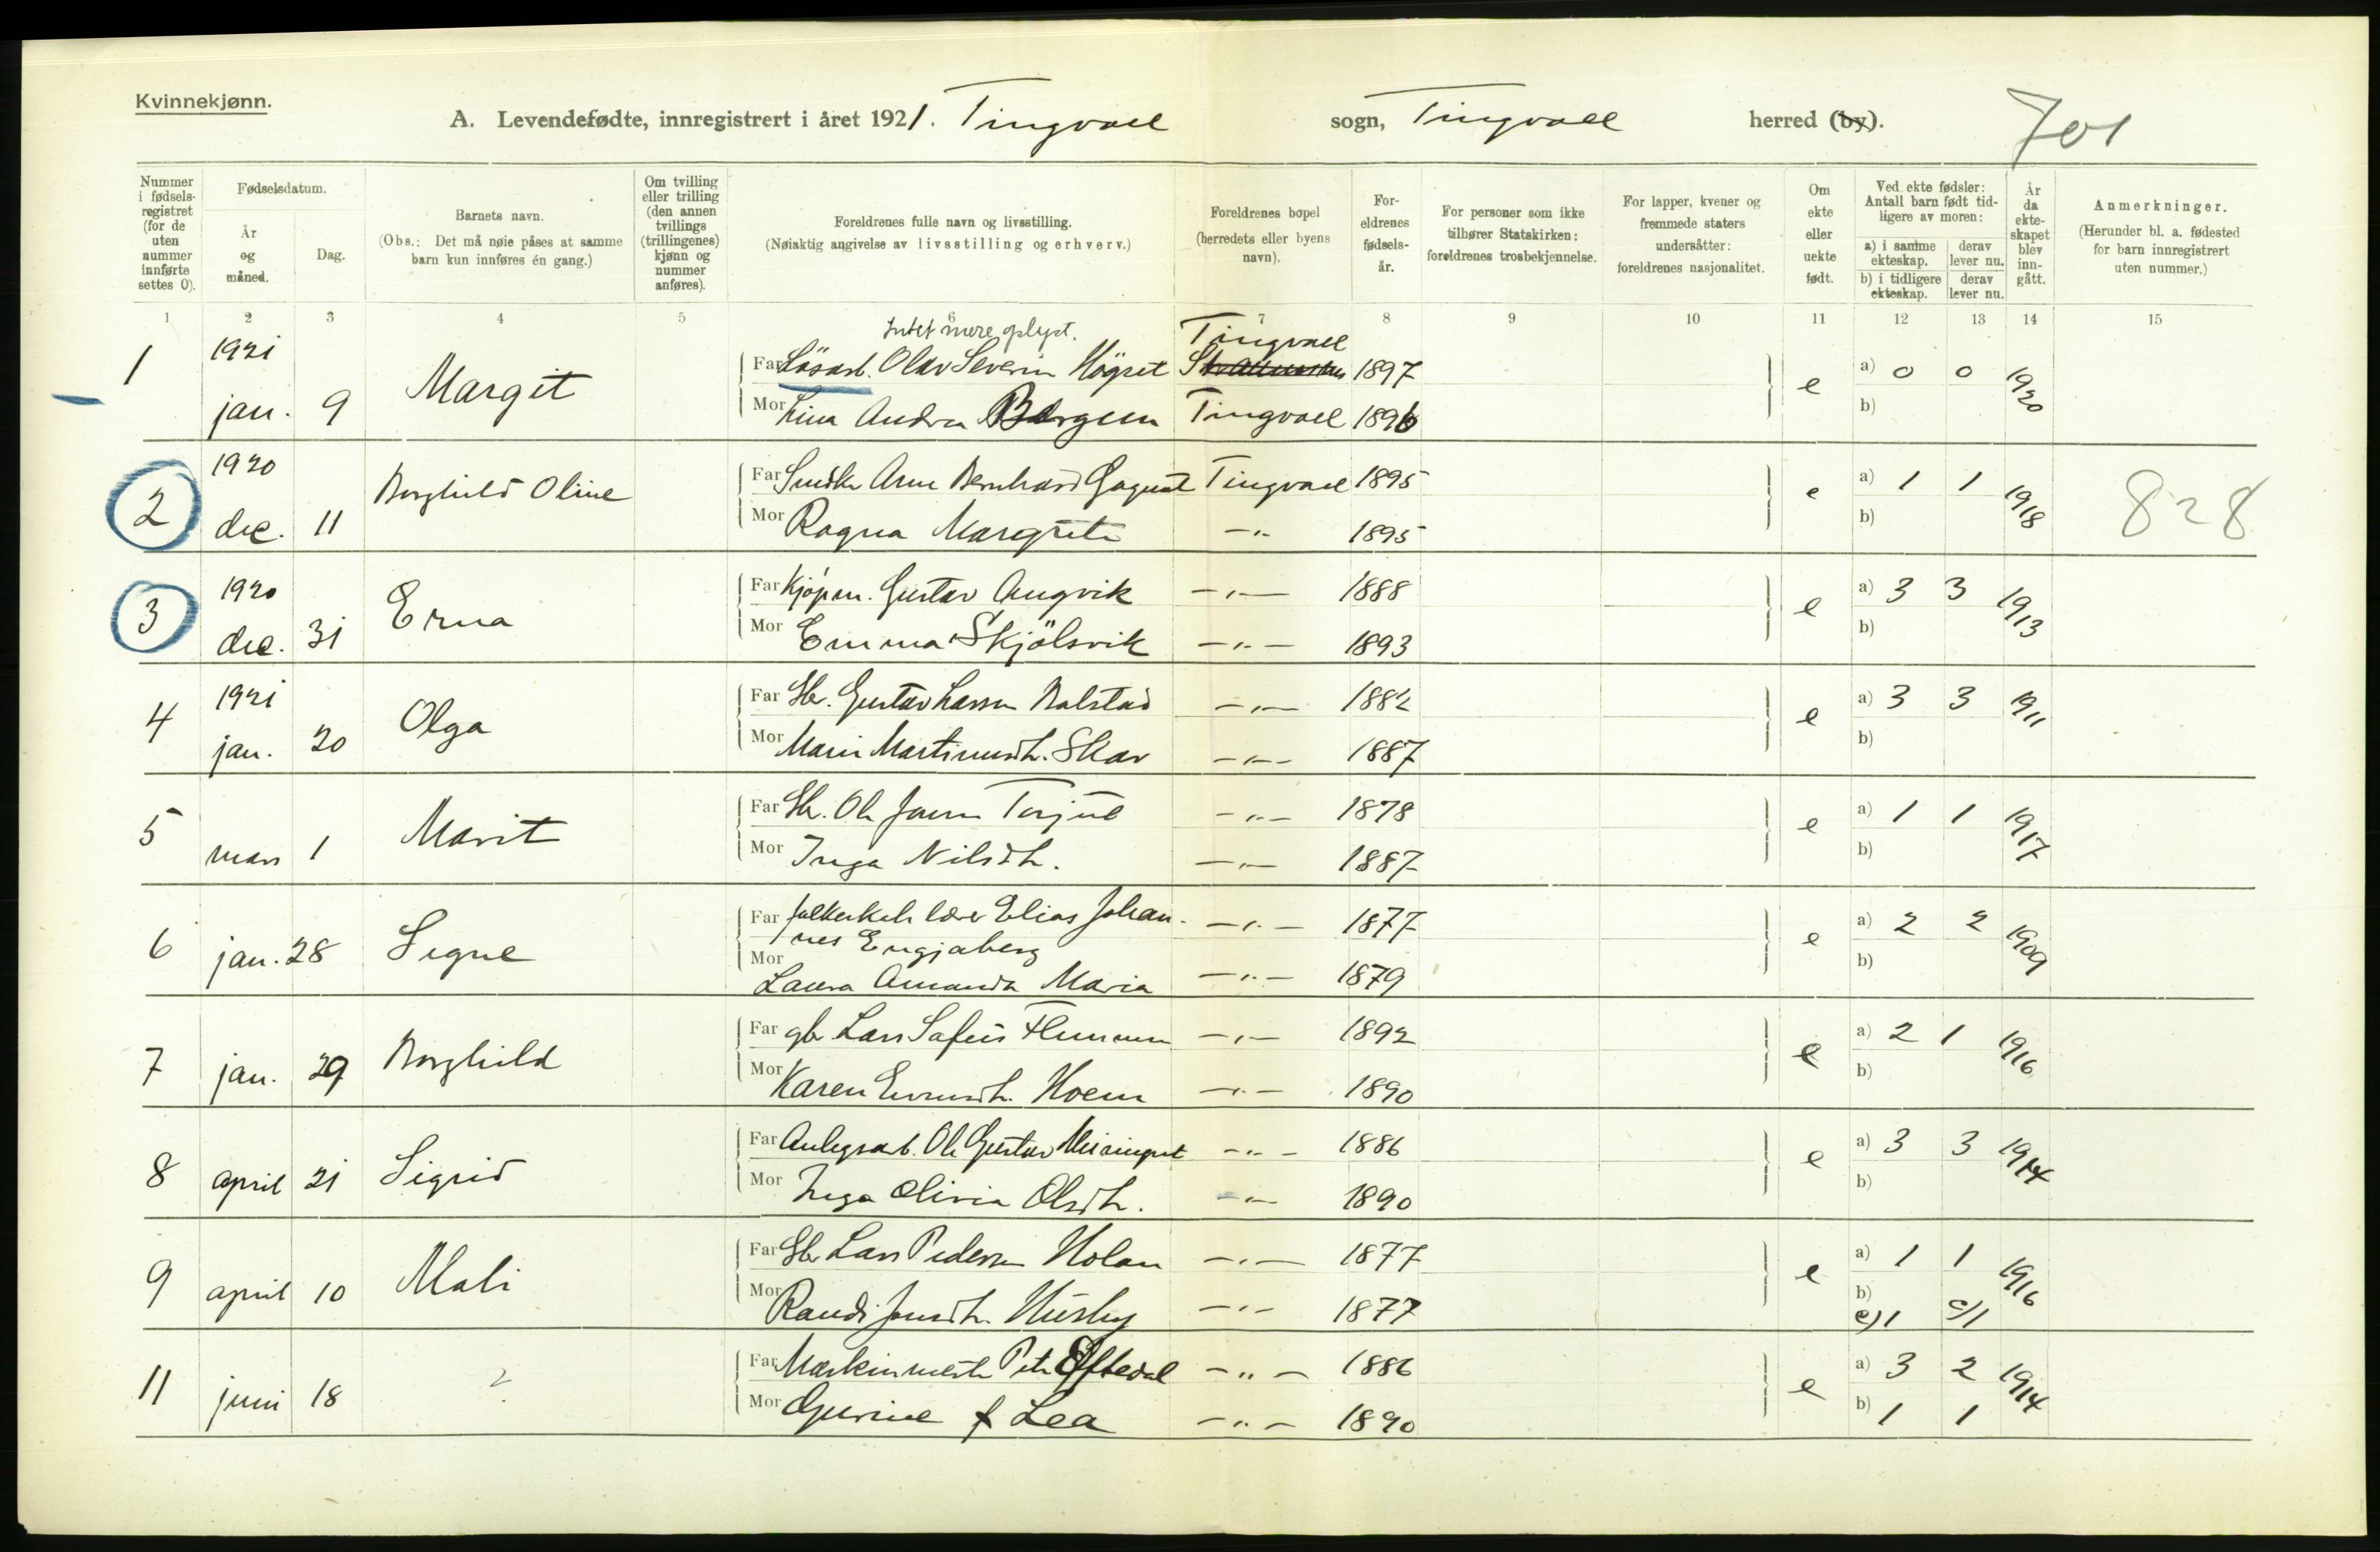 Kvinnekjønn.
A. Levendefødte, innregistrert i året 1921. Tingvoll sogn, Tingvoll herred (by).
701
Nummer i fødsels-registret (for de uten nummer innførte settes 0).
Fødselsdatum.
År og måned.
Dag.
Barnets navn.
(Obs.: Det må nøie påses at samme barn kun innføres én gang.)
Om tvilling eller trilling (den annen tvillings (trillingenes) kjønn og nummer anføres).
Foreldrenes fulle navn og livsstilling.
(Nøiaktig angivelse av livsstilling og erhverv.)
Foreldrenes bopel (herredets eller byens navn).
For-eldrenes fødsels-år.
For personer som ikke tilhører Statskirken: foreldrenes trosbekjennelse.
For lapper, kvener og fremmede staters undersåtter: foreldrenes nasjonalitet.
Om ekte eller uekte født.
Ved ekte fødsler: Antall barn født tid-ligere av moren:
a) i samme ekteskap. derav lever nu.
b) i tidligere ekteskap. derav lever nu.
År da ekte-skapet blev inn-gått.
Anmerkninger.
(Herunder bl. a. fødested for barn innregistrert uten nummer.)
1 2 3 4 5 6 7 8 9 10 11 12 13 14 15
Intet mere oplyst. Tingvoll
1 1921 jan. 9 Margit Far Løsarb. Olav Severin Högset 1897 e a) 0 0 1920
Mor Andrea Bergem Tingvoll 1896 b)
2 1920 dec. 11 Borghild Oline Far Arne Bernhard Tingvoll 1895 e a) 1 1 1918 828
Mor Ragna Margrete -„- 1895 b)
3 1920 dec. 31 Erna Far Kjøpm. Gustav Angvik -„- 1888 e a) 3 3 1913
Mor Emma Skjölsvik -„- 1893 b)
4 1921 jan. 20 Olga Far Gbr. Gustav Larsen Balstad -„- 1882 e a) 3 3 1911
Mor Marie Martinusdt. Skar -„- 1887 b)
5 mars 1 Marit Far Gbr. Ole Torjul -„- 1878 e a) 1 1 1917
Mor Inga Nilsdt. -„- 1887 b)
6 jan. 28 Signe Far lærer Elias Johan-nes Engjaberg -„- 1877 e a) 2 2 1909
Mor Laura Amanda Maria -„- 1879 b)
7 jan. 29 Borghild Far gbr. Lars -„- 1892 e a) 2 1 1916
Mor Karen Hoem -„- 1890 b)
8 april 21 Sigrid Far Anlegsarb. Ole Gustav Meisingset -„- 1886 e a) 3 3 1914
Mor Inga Olivia Olsdt. -„- 1890 b)
9 april 10 Mali Far Gbr Lars Pedersen Holan -„- 1877 e a) 1 1 1916
Mor Randi Jonsdt. Husby -„- 1877 b) c) 1 c) 1
11 juni 18 ? Far Maskinmester Peter Oftedal -„- 1886 e a) 3 2 1914
Mor Gurine f Lea -„- 1890 b) 1 1